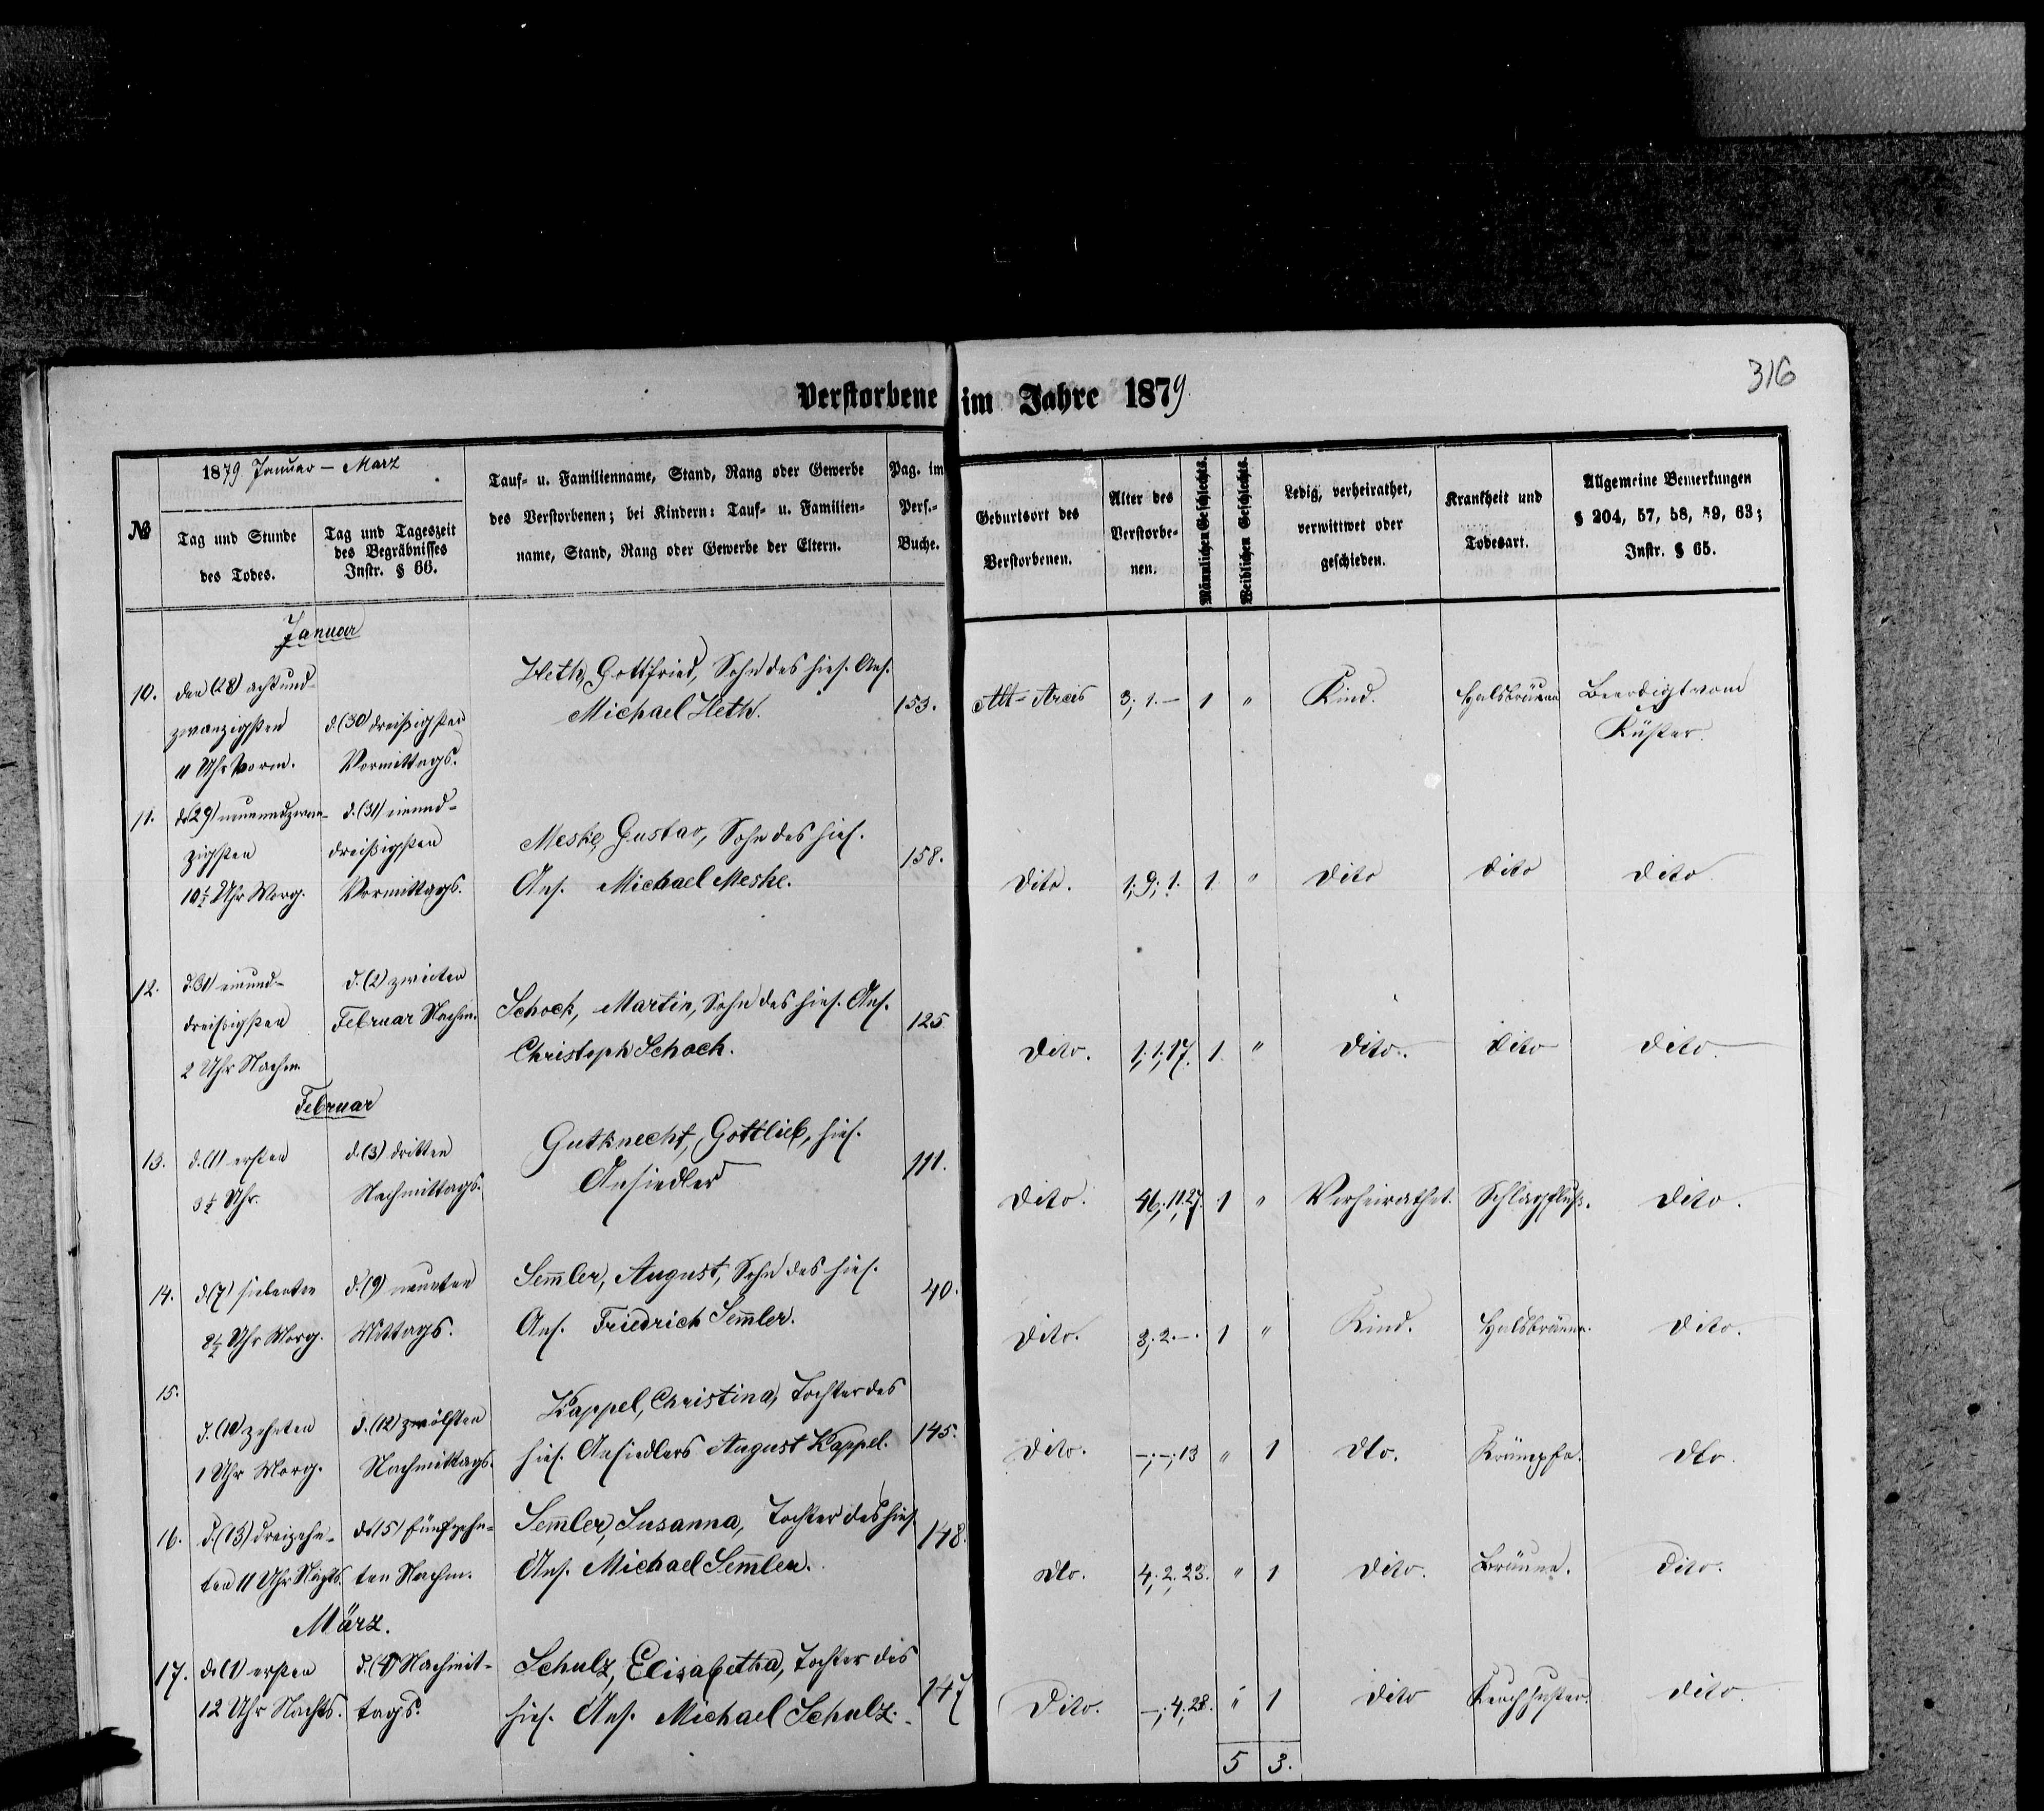 316
Verstorbene im Jahre 1879.
№
1879 Januar – März
Tag und Stunde
des Todes.
Tag und Tageszeit
des Begräbnisses
Instr. § 66.
Tauf- u. Familienname, Stand, Rang oder Gewerbe
des Verstorbenen; bei Kindern: Tauf- u. Familien-
name, Stand, Rang oder Gewerbe der Eltern.
Pag. im
Pers.-
Buche.
Geburtsort des
Verstorbenen.
Alter des
Verstorbe-
nen.
Männlichen Geschlechts.
Weiblichen Geschlechts.
Ledig, verheirathet,
verwittwet oder
geschieden.
Krankheit und
Todesart.
Allgemeine Bemerkungen
§ 204, 57, 58, 59, 63;
Instr. § 65.
Januar
10. den (28) achtund-
zwanzigsten
11 Uhr Vorm.
d. (30) dreißigsten
Vormittags.
Heth, Gottfried, Sohn des hies. Ans.
Michael Heth.
153.
Alt-Arcis 3; 1. – 1 " Kind. Halsbräune Beerdigt vom
Küster.
11. d. (29) neunundzwan-
zigsten
10½ Uhr Morg.
d. (31) einund-
dreißigsten
Vormittags.
Meske, Gustav, Sohn des hies.
Ans. Michael Meske.
158.
Dito. 1; 9; 1. 1. " dito dito dito.
12. d. (31) einund-
dreißigsten
2 Uhr Nachm.
d. (2) zweiten
Februar Nachm.
Schock, Martin, Sohn des hies. Ans.
Christoph Schock.
125
Dito. 1; 1; 17. 1. " dito. dito dito.
Februar
13. d. (1) ersten
3½ Uhr.
d. (3) dritten
Nachmittags.
Gutknecht, Gottlieb, hies.
Ansiedler
111.
Dito. 46; 11; 27. 1 " Verheirathet. Schlagfluß. dito.
14. d. (7) siebenten
8½ Uhr Morg.
d. (9) neunten
Mittags.
Sem̄ler, August, Sohn des hies.
Ans. Friedrich Sem̄ler.
40.
Dito. 3; 2. –. 1 " Kind. Halsbräune. dito.
15.
d. (10) zehnten
1 Uhr Morg.
d. (12) zwölften
Nachmittags.
Kappel, Christina, Tochter des
hies. Ansiedlers August Kappel.
145.
Dito. –; –; 13 " 1 dto. Krämpfe. dto.
16. d. (13) dreizehn-
ten 11 Uhr Nachts.
d. (15) fünfzehn-
ten Nachm.
Sem̄ler, Susanna, Tochter des hies.
Ans. Michael Sem̄ler.
148.
dto. 4; 2; 23. " 1 dito. Bräune. dito.
März.
17. d. (1) ersten
12 Uhr Nachts.
d. (4) Nachmit-
tags.
Schulz, Elisabetha, Tochter des
hies. Ans. Michael Schulz.
147
Dito. –; 4; 28. " 1 dito Keuchhusten. dito.
5 3.